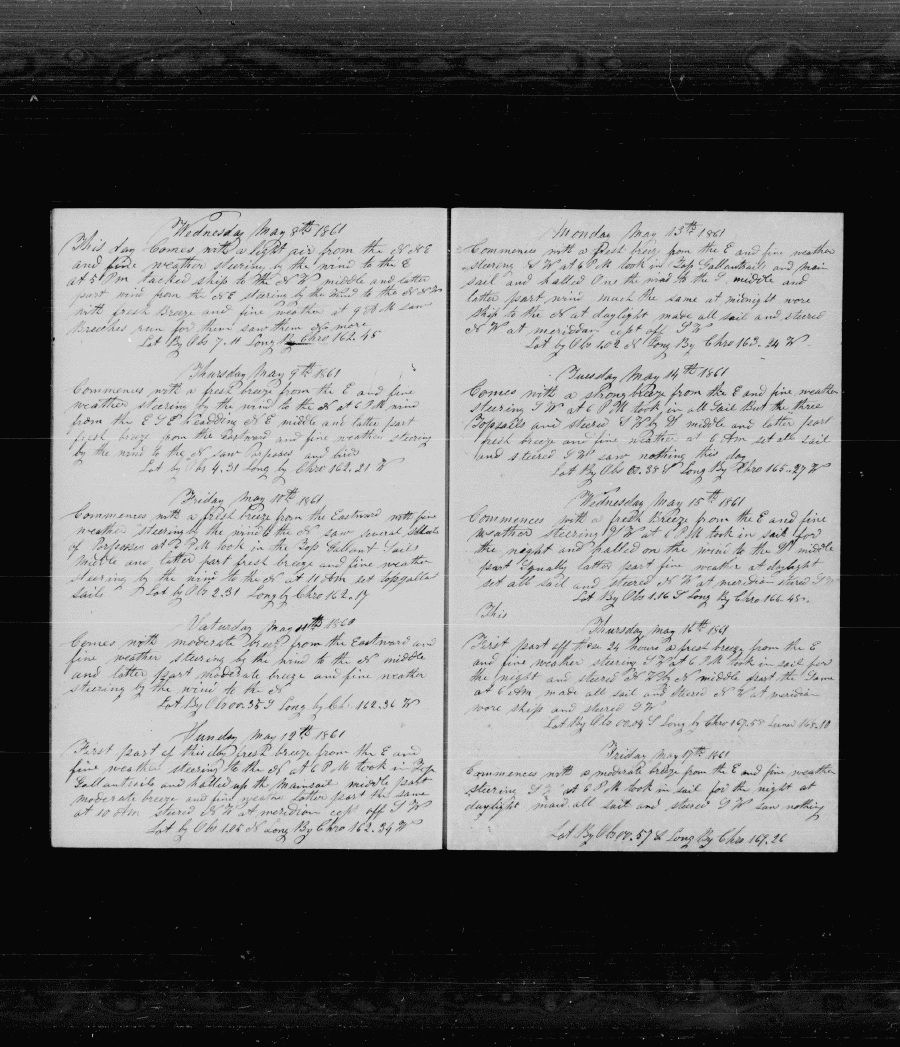 Wednesday May 8th 1861
This day Comes with a light air from the N N E
and fine weather steering by the wind to the E
at 5 P m tacked ship to the N W middle and latter
part wind from the N E stearing by the wind to the N N W
with fresh Breeze and fine weather at 9 A M saw
Breeches run for them saw them no more
Lat By Obs 7.11 Long By Chro 162.45
Thursday May 9th 1861
Commences with a fresh breeze from the E and fine
weather steering by the wind to the N at 6 P M wind
from the E S E headding N E middle and latter part
fresh breeze from the Eastward and fine weather steering
by the wind to the N saw Porposes and birds
Lat by Obs 4.31 Long by Chro 162.21 W
Friday May 10th 1861
Commences with a fresh breeze from the Eastward with fine
weather steering by the wind to the N saw several
of Porpoeses at P M took in the Top Gallant Sails
Middle and latter part fresh breeze and fine weather
steering by the wind to the N at 11 A m set topgalla
sails Lat by Obs 2.31 Long by Chro 162.17
Saturday May 11th 1861
Comes with moderate breeze from the Eastward and
fine weather steering by the wind to the N middle
and latter part moderate breeze and fine weather
steering by the wind to the N
Lat By Obs 00.35 S Long by Ch 162.36 W
Sunday May 12th 1861
First part of this day fresh breeze from the E and
fine weather steering to the N at 6 P M took in Top
Gallantsails and halled up the mainsail middle part
moderate breeze and fine weather latter part the same
at 10 A m steered N W at meridian cept off S W
Lat by Obs 1.05 N Long By Chro 162.34 W
Monday May 13th 1861
Commences with a fresh breeze from the E and fine weather
steering S W at 6 P M took in Top Gallantsail and main
sail and halled One the wind to the S middle and
latter part wind much the same at midnight wore
ship to the N at daylight made all sail and steered
N W at meriddan cept off S W
Lat by Obs 402 N Long By Chro 163.24 W
Tuesday May 14th 1861
Comes with a strong breeze from the E and fine weather
steering S W at 6 P M took in all Sail But the three
Topsails and steered S W by W middle and latter part
fresh breeze and fine weather at 6 Am set all sail
and steered S W saw nothing this day
Lat By Obs 00.38 S Long By Chro 165.27 W
Wednesday May 15th 1861
Commences with a fresh breeze from the E and fine
weather steering S W at 6 P M took in sail for
the night and halled on the wind to the middle
part Equally latter part fine weather at daylight
set all sail and steered N W at meridian stered S W
Lat By Obs 1.16 S Long By Chro 166.45
This
Thursday May 16th 1861
First part off these 24 hours a fresh breeze from the E
and fine weather steering S W at 6 P M took in sail for
the night and steered N W by N middle part the Same
at 6 Am made all sail and steered N W at meridian
wore ship and stered S W
Lat By Obs 00.04 S Long by Chro 167.55 Lunar 168.10
Friday May 17th 1861
Commences with a moderate breeze from the E and fine weather
steering S W at 6 P M took in sail for the night at
daylight maid all sail and steered S W saw nothing
Lat By Obs 00.57 S Long By Chro 169.26